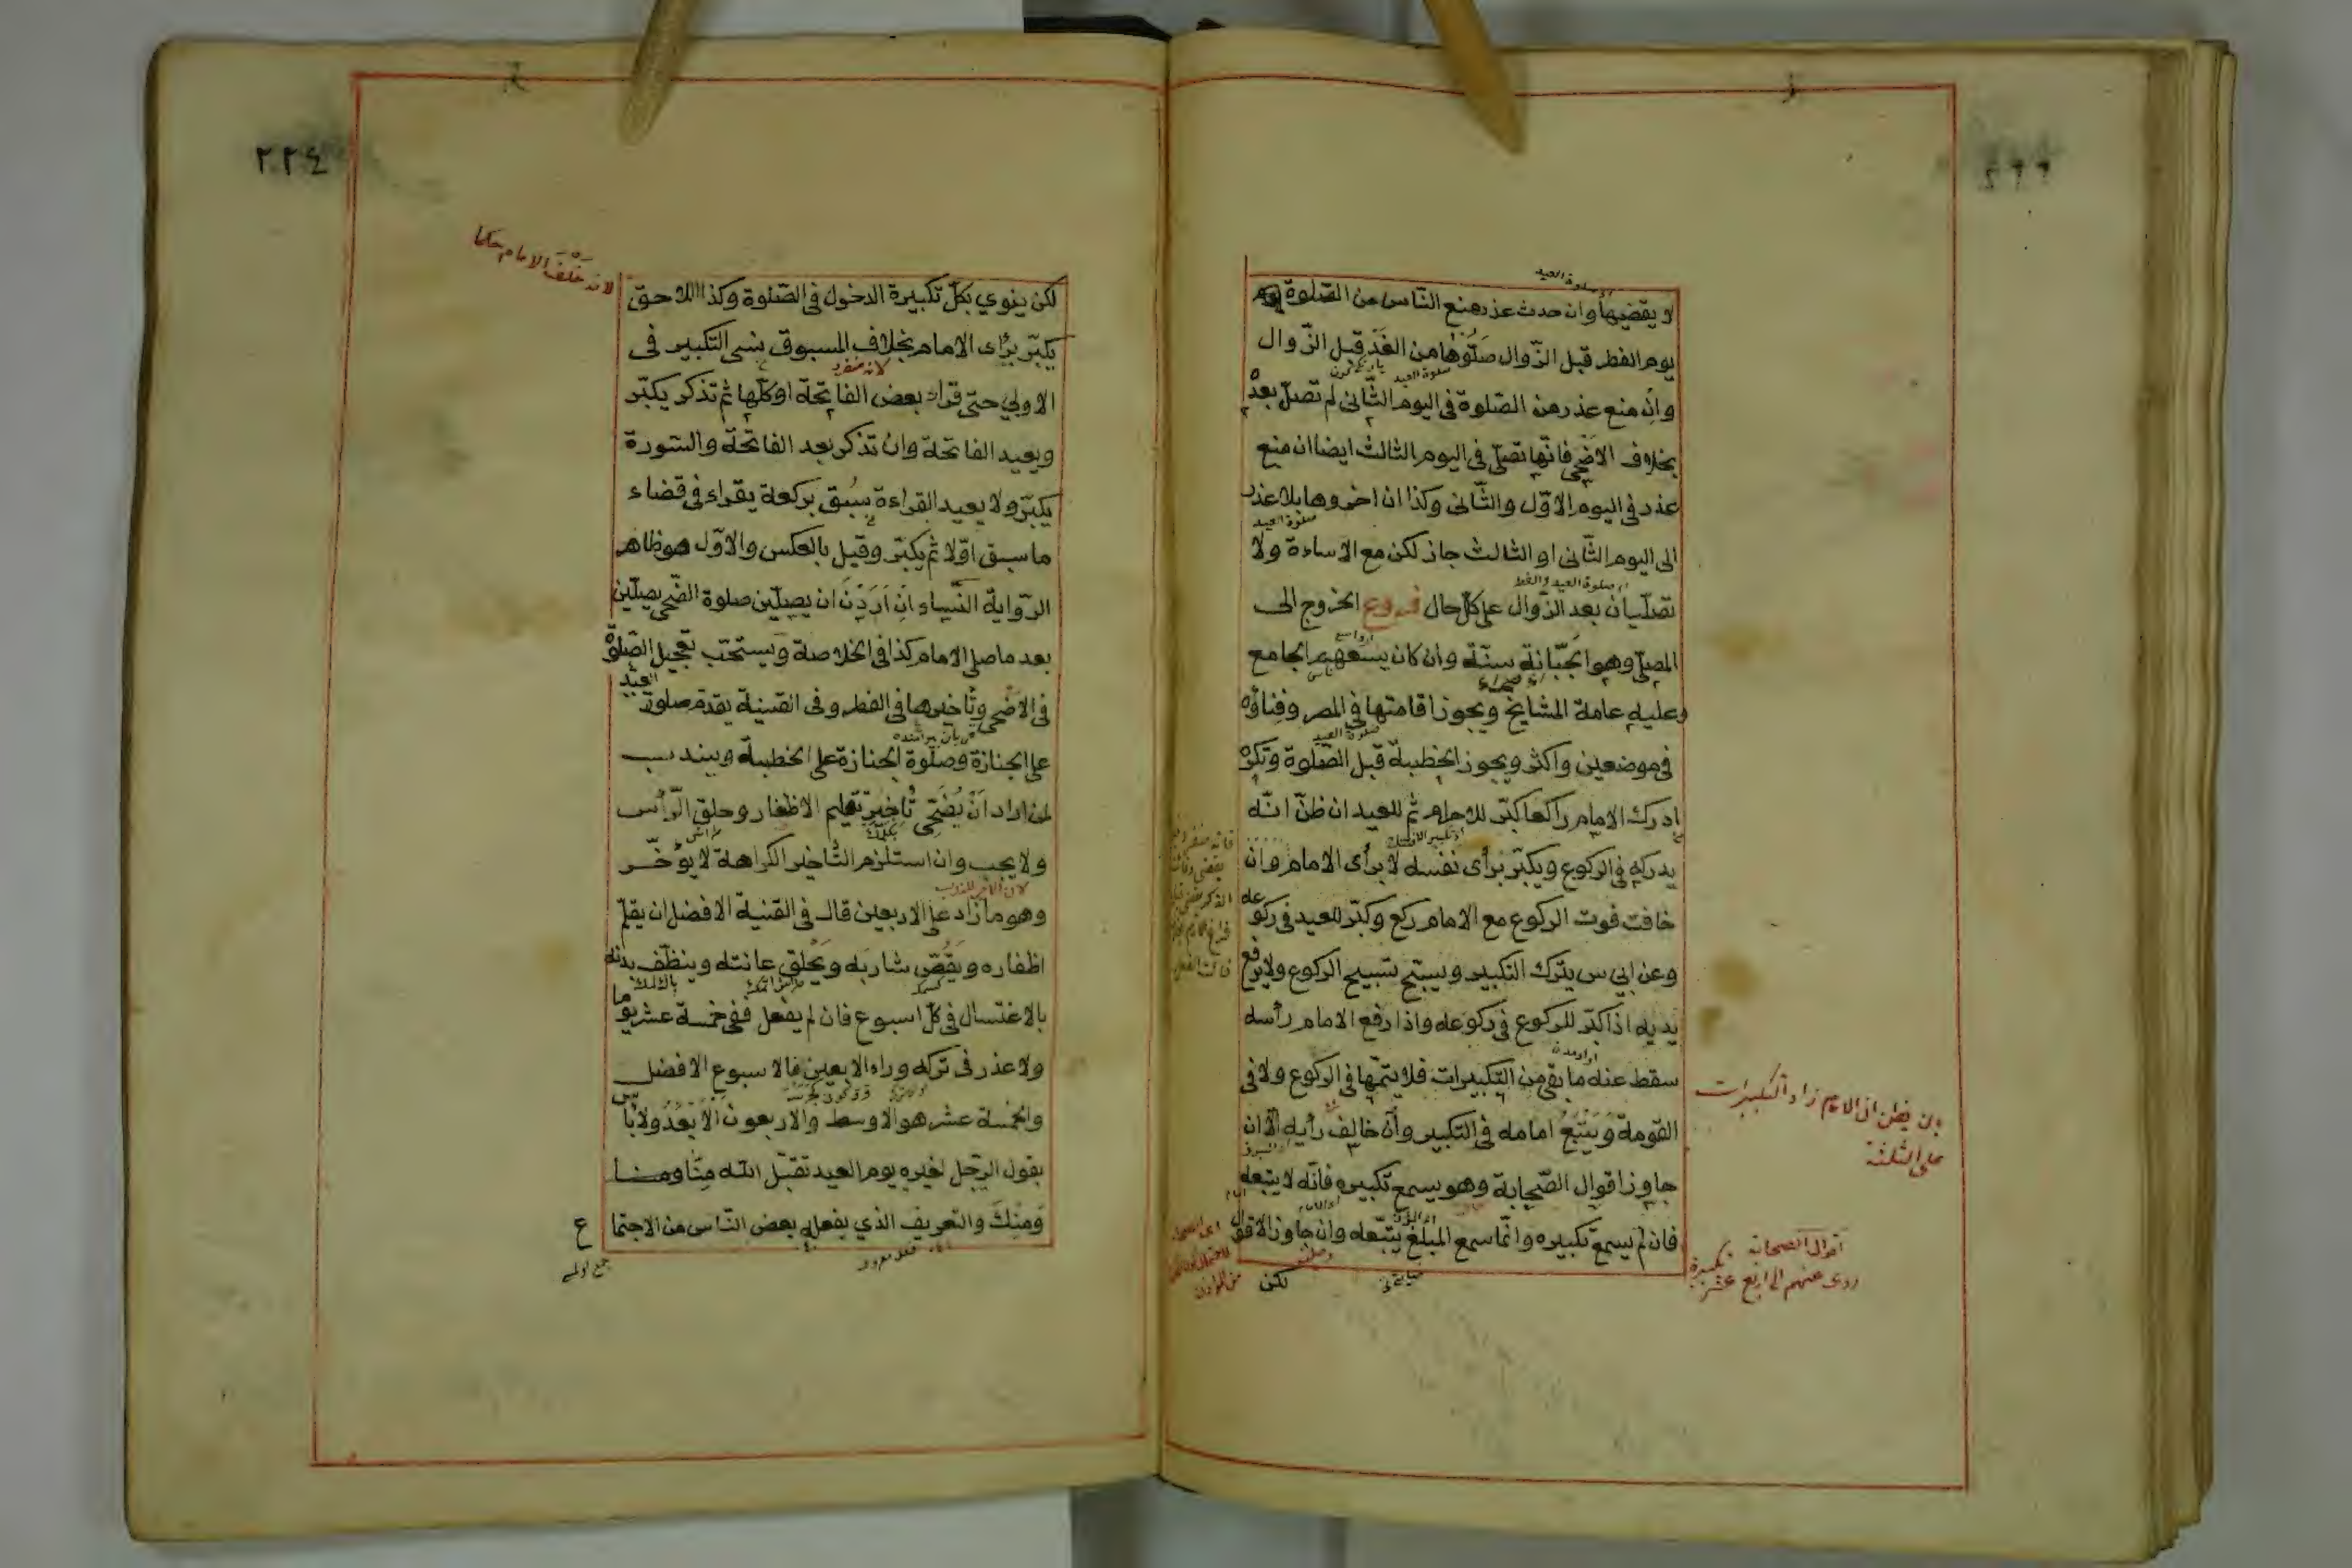 لا يقضيها وان حدث عذر منع الناس من الصلوة
يوم الفطر قبل الزّوال صَلَّوْها من الغَدِ قبل الزّوال
وانْ منع عذر من الصّلوة فى اليوم الثّانى لم تصلّ بعدهُ
بخلاف الاضْحى فانّها تصلّى فى اليوم الثالث ايضا ان منع
عذر فى اليوم الاوّل والثّانى وكذا ان اخروها بلا عذر
الى اليوم الثّانى او الثالث جاز لكن مع الاساءة ولا
تصلّيان بعد الزّوال على كلّ حال فروع الخروج الى
المصلّى وهو الجَبّانة سنّة وان كان يسعهم الجامع
وعليه عامة المشايخ ويجوز اقامتها فى المصر وفِنائه
فى موضعين واكثر ويجوز الخطبة قبل الصّلوة وتكره
ادرك الامام راكعا كبّر للاحرام ثم للعيد ان ظنّ انّه
يدركه فى الركوع ويكبّر برأى نفسه لا برأى الامام وان
خافت فوت الركوع مع الامام ركع وكبّر للعيد فى ركوعه
وعن ابى س يترك التكبير ويسبّح تسبيح الركوع ولا يرفع
يديه اذا كبّر للركوع فى ركوعه واذا رفع الامام رأسه
سقط عنه ما بقى من التكبيرات فلا يتمّها فى الركوع ولا فى
القومة وَيَتْبَعُ امامه فى التكبير وان خالف رأيه الّا ان
جاوز اقوال الصّحابة وهو يسمع تكبيره فانّه لا يتبعه
فان لم يسمع تكبيره وانّما سمع المبلّغ يتّبعه وان جاوز الاقوال
لكن
بان يظن ان الامام زاد التكبيرات
على الثلثة
اقوال الصحابة
روى عنهم الى اربع عشر تكبيرة
٢٢٤
لانه خَلْفَ الامام حكما
لكن ينوي بكلّ تكبيرة الدخول فى الصّلوة وكذا اللاحق
يكبّر برأى الامام بخلاف المسبوق نسى التكبير فى
لانه منفرد
الاولى حتى قراء بعض الفاتحة او كلّها ثم تذكر يكبّر
ويعيد الفاتحة وان تذكر بعد الفاتحة والسّورة
يكبّر ولا يعيد القراءة سُبق بركعة يقراء فى قضاء
ما سبق اوّلا ثم يكبّر وقيل بالعكس والاوّل هو ظاهر
الرّواية النّساء انْ اَرَدْنَ ان يصلّين صلوة الضّحى يصلّين
بعد ما صلى الامام كذا فى الخلاصة ويستحبّ تعجيل الصّلوة
فى الاضحى وتأخيرها فى الفطر وفى القنية يقدم صلوة العيد
على الجنازة وصلوة الجنازة على الخطبة ويندب
لمن اراد اَنْ يُضَحّى تأخير تقليم الاظفار وحلق الرّأس
ولا يجب وان استلزم التّأخير الكراهة لا يؤخّر
وهو ما زاد على الاربعين قال فى القنية الافضل ان يقلّم
اظفاره ويَقُصّ شاربه ويَحْلق عانته وينظّف بدنه
بالاغتسال فى كلّ اسبوع فان لم يفعل ففى خمسة عشر يوما
ولا عذر فى تركه وراء الاربعين فالاسبوع الافضل
والخمسة عشر هو الاوسط والاربعون الاَبْعَدُ ولا بأس
بقول الرّجل لغيره يوم العيد تقبّل الله مِنّا ومنا
وَمِنْكَ والتعريف الذي يفعله بعض النّاس من الاجتما
ع